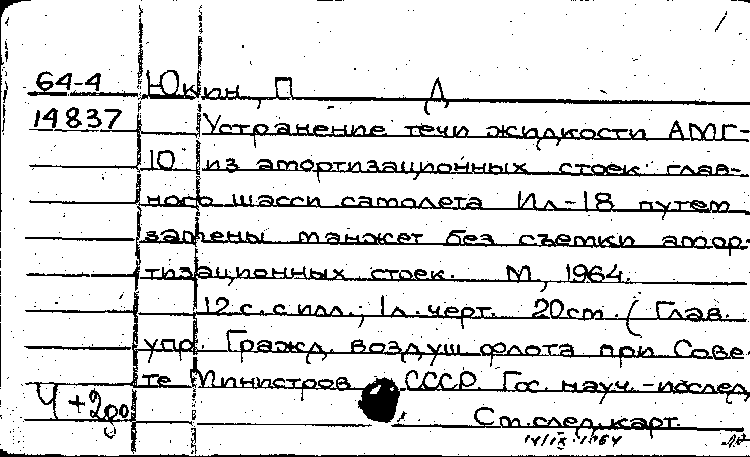 64-4 Юкин, П Д
14837 Устранение течи жидкости АМГ-
10 из амортизационных стоек глав-
ного шасси самолета Ил-18 путем
замены манжет без съемки амор-
тизационных стоек. М, 1964.
12 с. с илл.; 1 л. черт. 20 см. (Глав.
упр. Гражд. воздуш. флота при Сове-
те Министров СССР. Гос. науч.-послед.
Ч+2
См. след. карт.